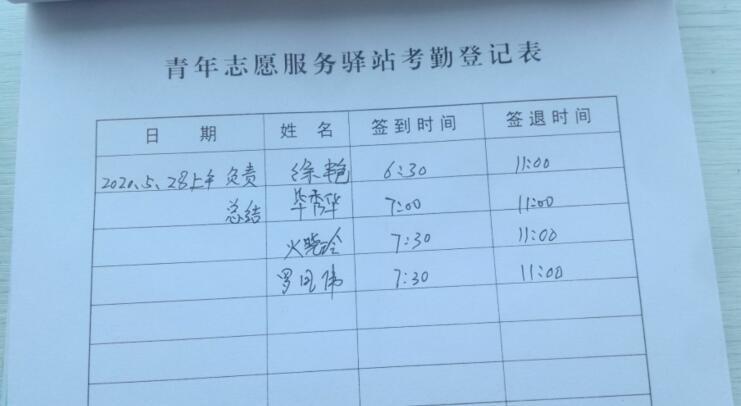 青年志愿服务驿站考勤登记表
日 期 姓 名 签到时间 签退时间
2020.5.28上午 负责 徐艳 6:30 11:00
总结 毕秀华 7:00 11:00
火晓玲 7:30 11:00
罗凤伟 7:30 11:00